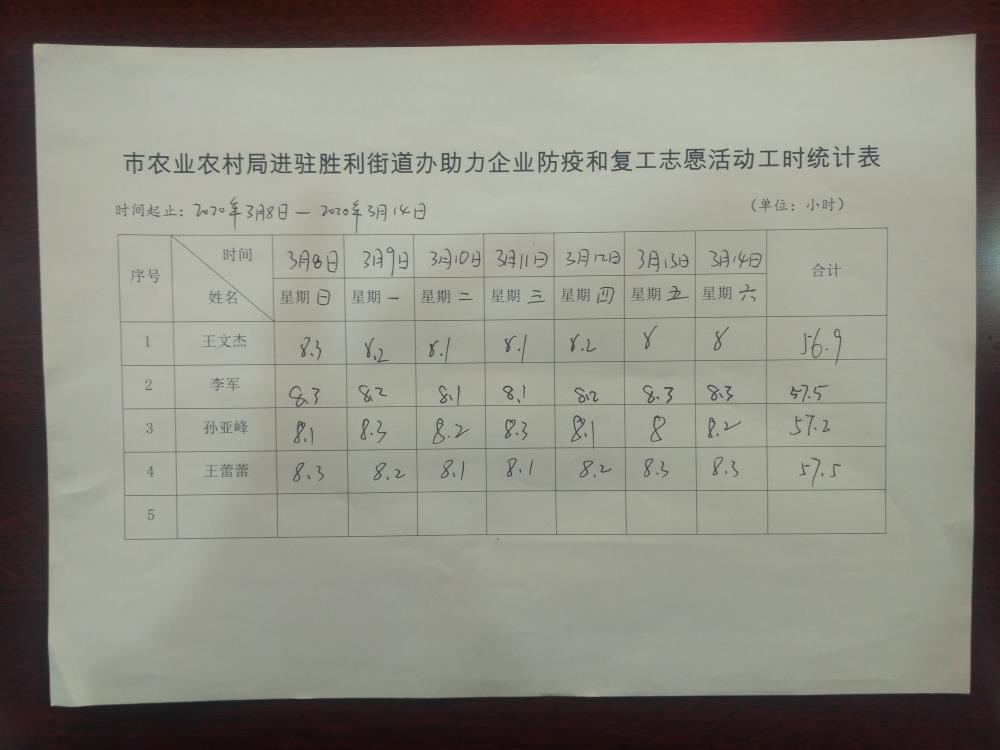 市农业农村局进驻胜利街道办助力企业防疫和复工志愿活动工时统计表
时间起止：2020年3月8日—2020年3月14日 （单位：小时）
序号 时间 姓名 3月8日 3月9日 3月10日 3月11日 3月12日 3月13日 3月14日 合计
星期日 星期一 星期二 星期三 星期四 星期五 星期六
1 王文杰 8.3 8.2 8.1 8.1 8.2 8 8 56.9
2 李军 8.3 8.2 8.1 8.1 8.2 8.3 8.3 57.5
3 孙亚峰 8.1 8.3 8.2 8.3 8.1 8 8.2 57.2
4 王蕾蕾 8.3 8.2 8.1 8.1 8.2 8.3 8.3 57.5
5